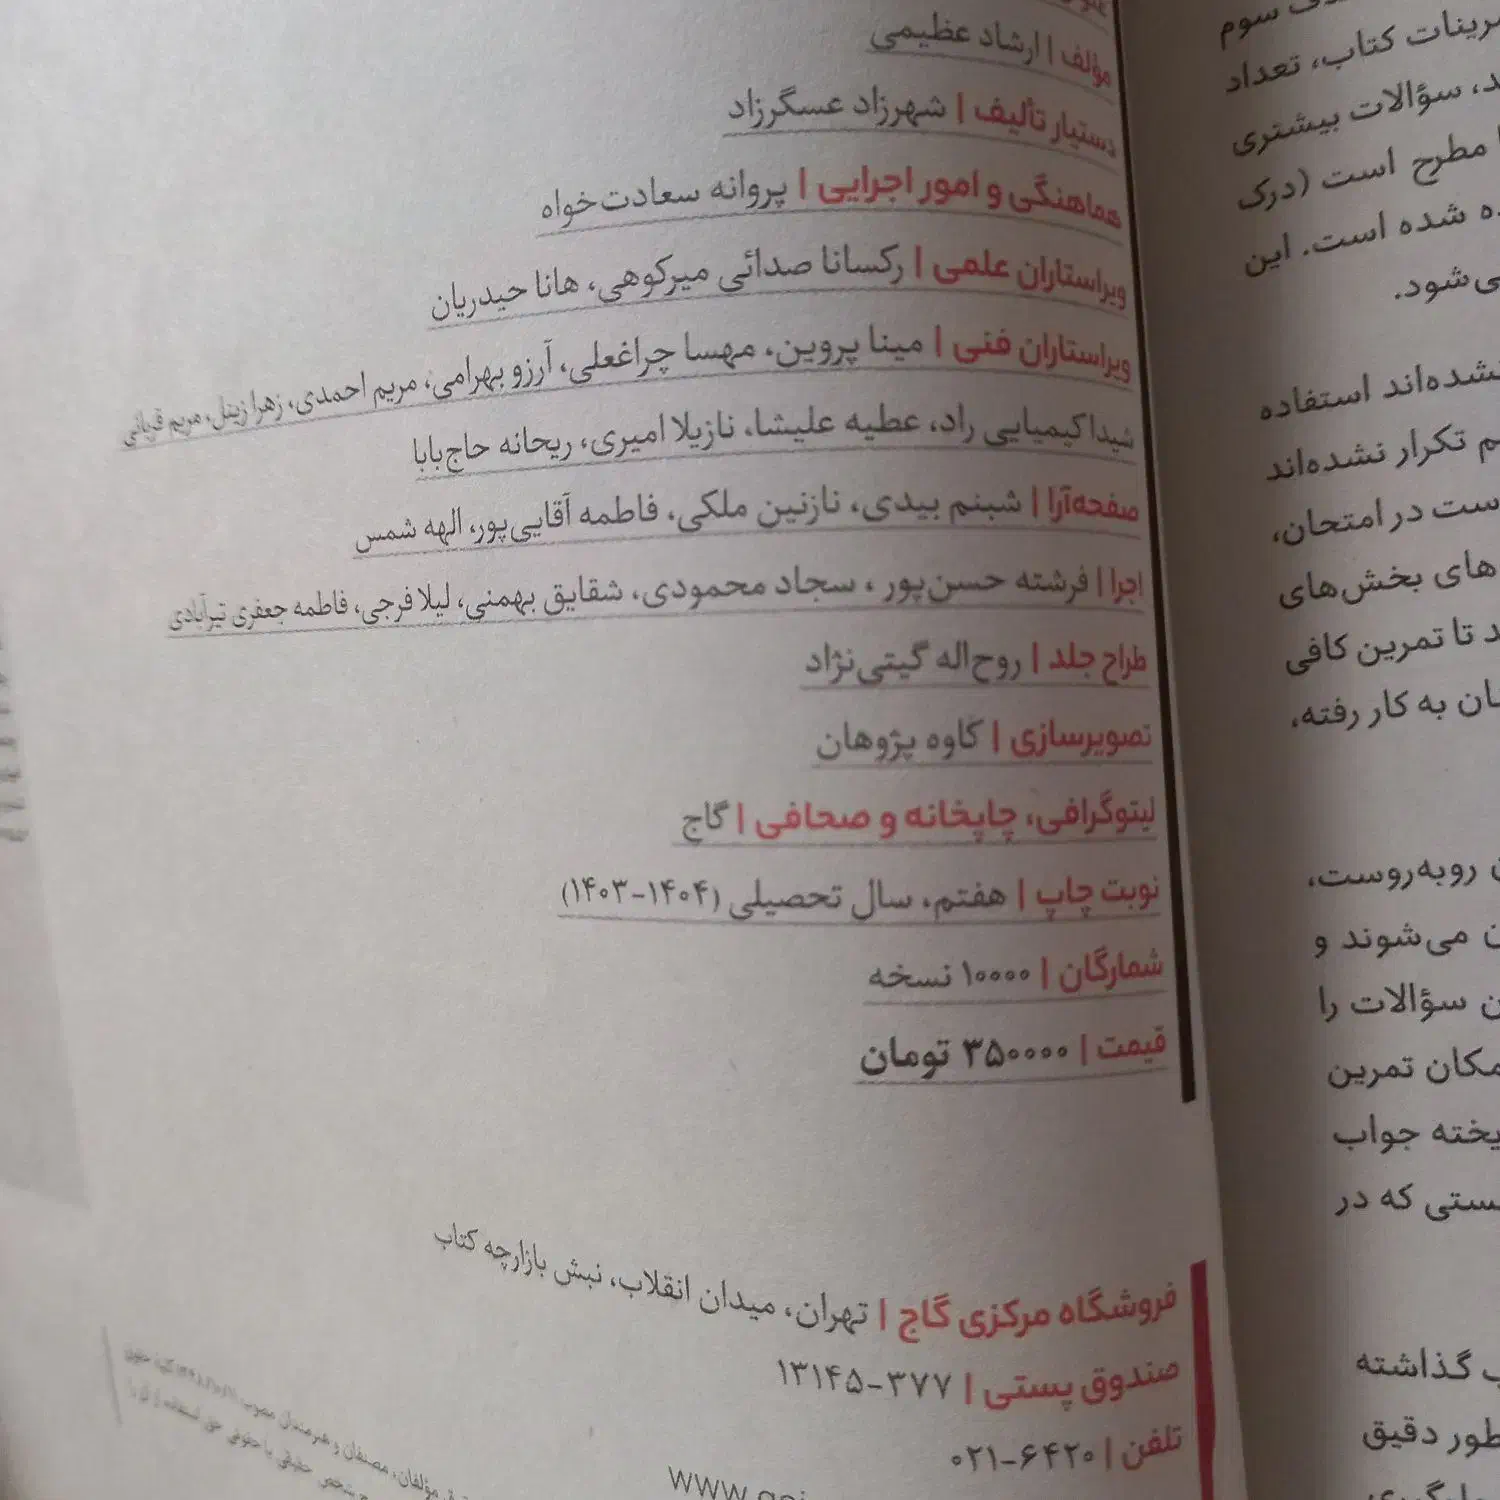 مؤلف | ارشاد عظیمی
دستیار تألیف | شهرزاد عسگرزاد
هماهنگی و امور اجرایی | پروانه سعادت‌خواه
ویراستاران علمی | رکسانا صدائی میرکوهی، هانا حیدریان
ویراستاران فنی | مینا پروین، مهسا چراغعلی، آرزو بهرامی، مریم احمدی، زهرا زینل، مریم قربانی
شیدا کیمیایی راد، عطیه علیشا، نازیلا امیری، ریحانه حاج‌بابا
صفحه‌آرا | شبنم بیدی، نازنین ملکی، فاطمه آقایی‌پور، الهه شمس
اجرا | فرشته حسن‌پور ، سجاد محمودی، شقایق بهمنی، لیلا فرجی، فاطمه جعفری تیرآبادی
طراح جلد | روح‌اله گیتی‌نژاد
تصویرسازی | کاوه پژوهان
لیتوگرافی، چاپخانه و صحافی | گاج
نوبت چاپ | هفتم، سال تحصیلی (۱۴۰۴-۱۴۰۳)
شمارگان | ۱۰۰۰۰ نسخه
قیمت | ۳۵۰۰۰۰ تومان
فروشگاه مرکزی گاج | تهران، میدان انقلاب، نبش بازارچه کتاب
صندوق پستی | ۳۷۷-۱۳۱۴۵
تلفن | ۶۴۲۰-۰۲۱
www.gaj
مؤلفان، مصنفان و هنرمندان مصوب
شخص حقیقی یا حقوقی حق استفاده از آن را
سوم
کتاب، تعداد
سؤالات بیشتری
مطرح است (درک
شده است. این
می‌شود.
نشده‌اند استفاده
تکرار نشده‌اند
است در امتحان،
های بخش‌های
تا تمرین کافی
به کار رفته،
روبه‌روست،
می‌شوند و
سؤالات را
امکان تمرین
جواب
که در
گذاشته
طور دقیق